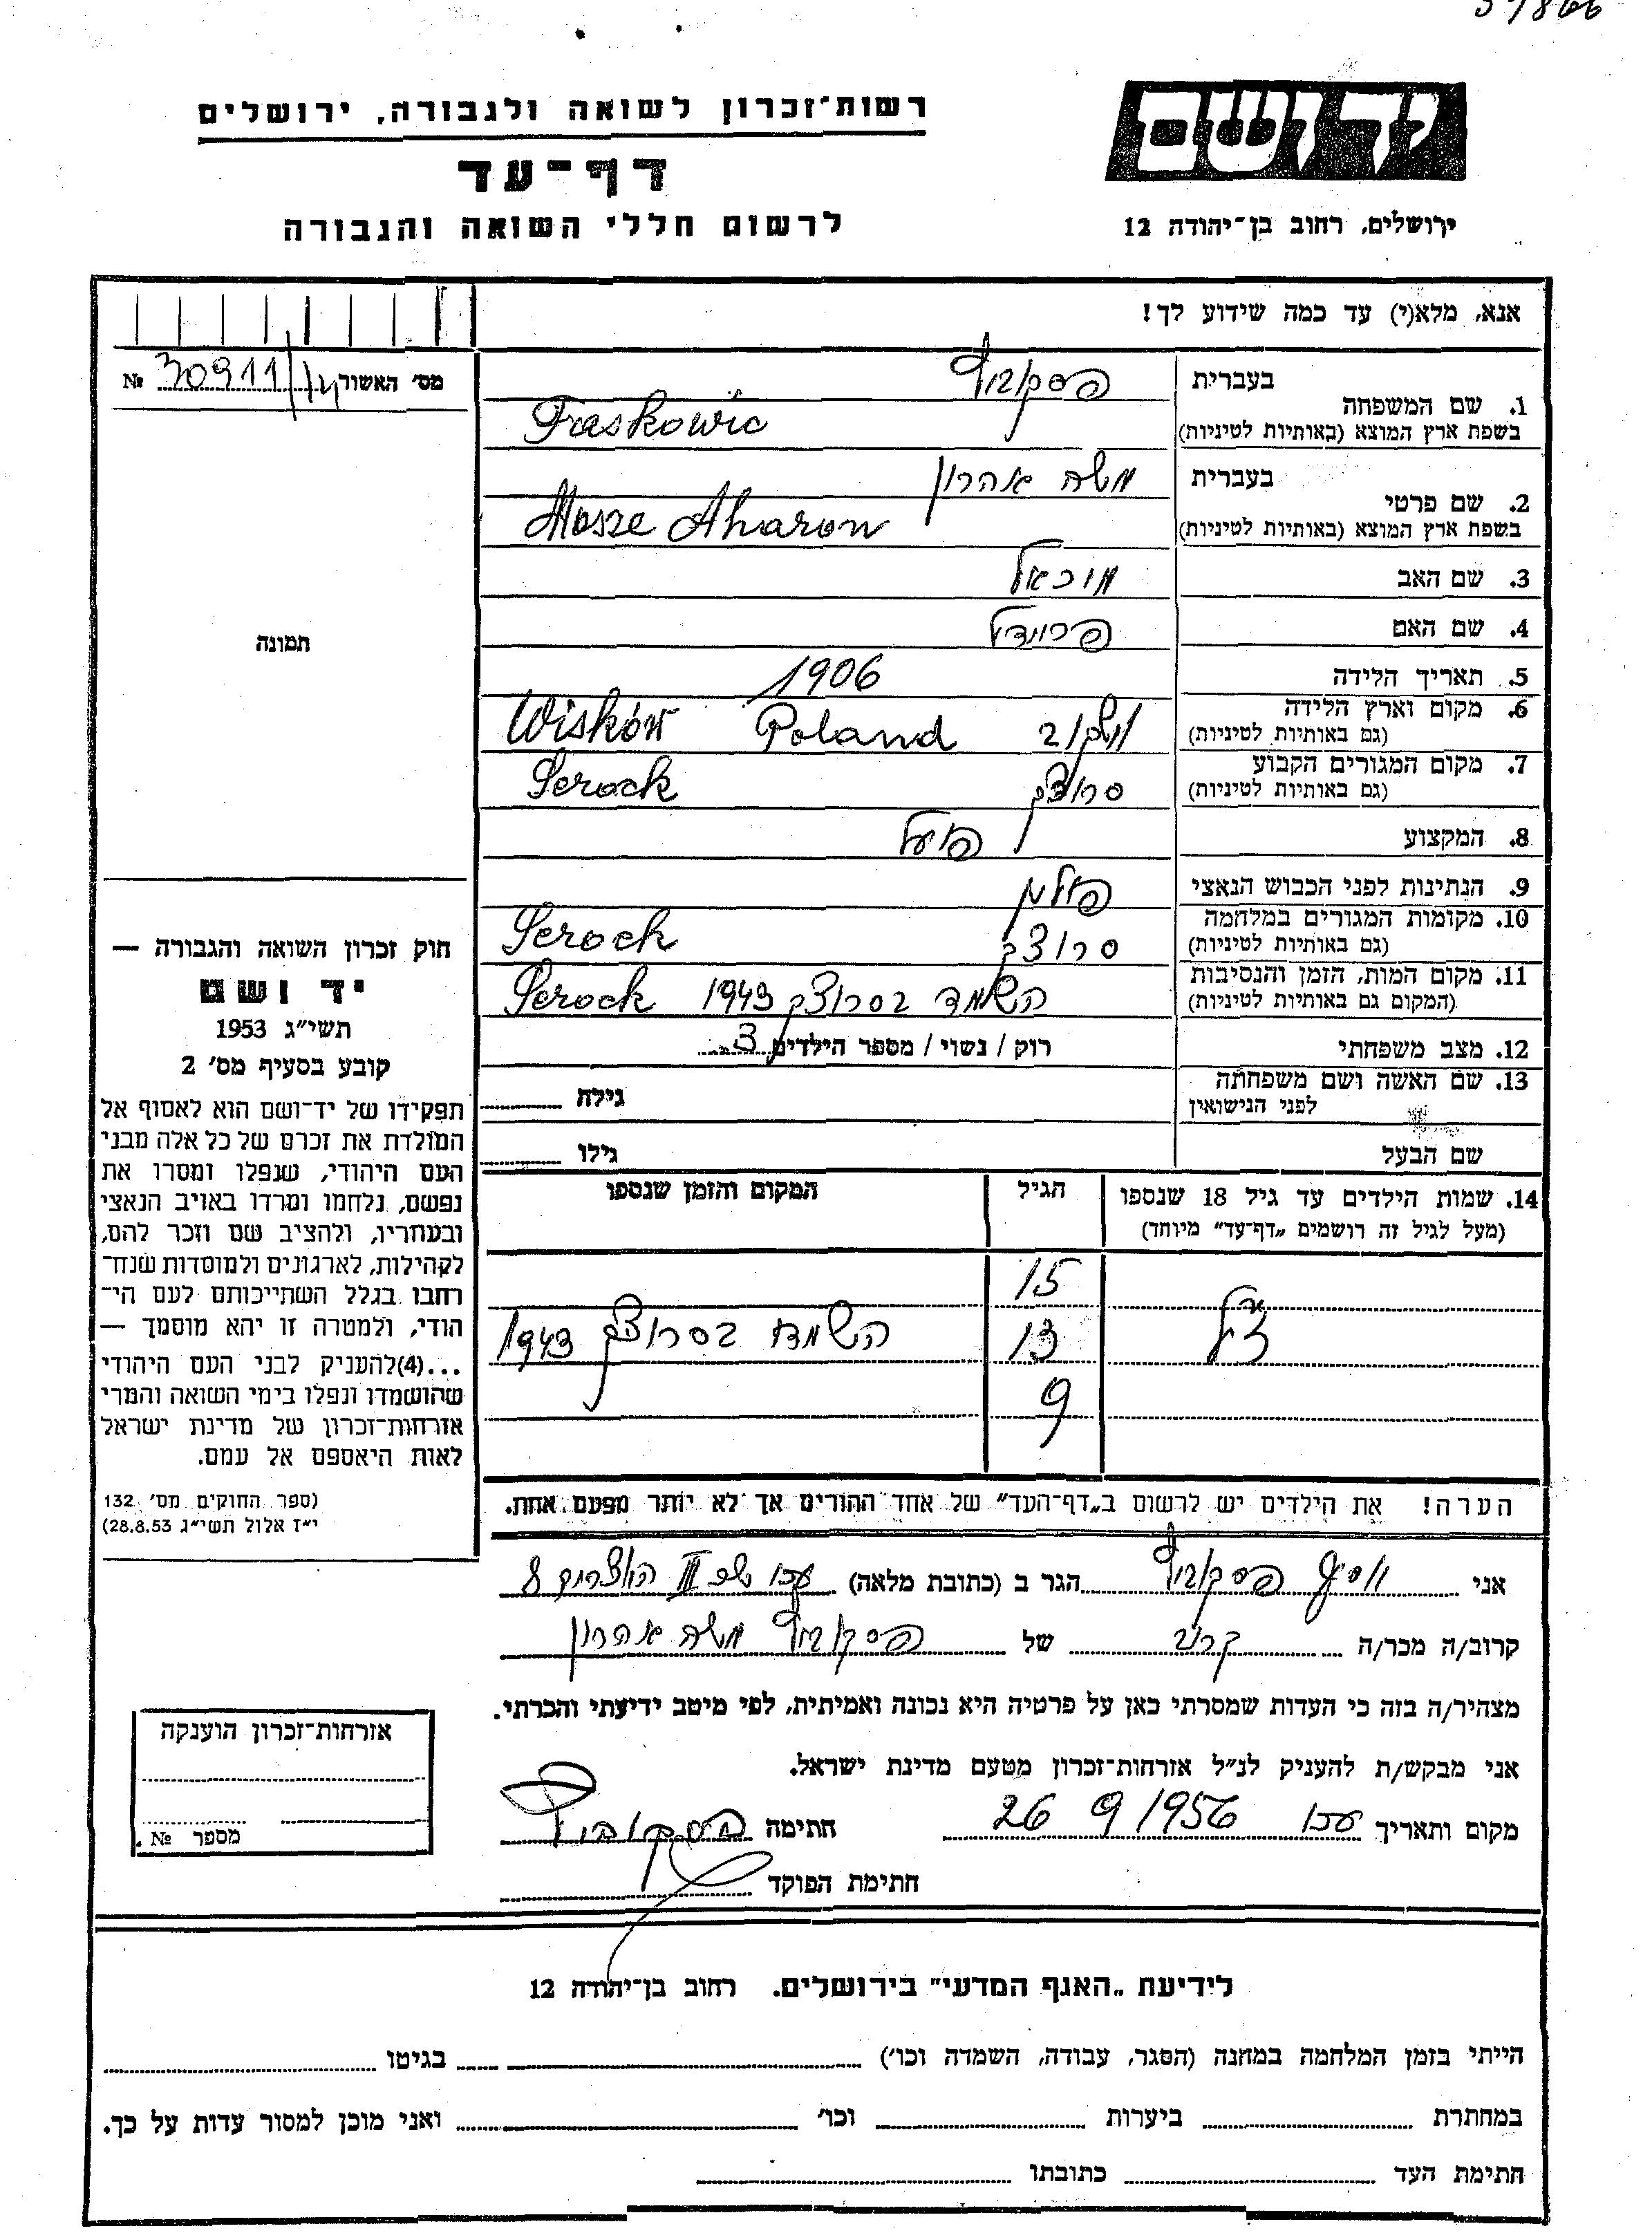 רשות־זכרון לשואה ולגבורה, ירושלים
דף־עד
לרשום חללי השואה והגבורה
יד ושם
ירושלים, רחוב בן־יהודה 12
אנא, מלא(י) עד כמה שידוע לך!
מס' האשור 30911/14 №
תמונה
1. שם המשפחה
בעברית פסקוביץ
בשפת ארץ המוצא (באותיות לטיניות) Fraskowic
2. שם פרטי
בעברית משה אהרון
בשפת ארץ המוצא (באותיות לטיניות) Mosze Aharon
3. שם האב מיכאל
4. שם האם פריידל
5. תאריך הלידה 1906
6. מקום וארץ הלידה
(גם באותיות לטיניות) וישקוב Poland Wisków
7. מקום המגורים הקבוע
(גם באותיות לטיניות) סרוצק Serock
8. המקצוע פועל
9. הנתינות לפני הכבוש הנאצי פולין
10. מקומות המגורים במלחמה
(גם באותיות לטיניות) סרוצק Serock
11. מקום המות, הזמן והנסיבות
(המקום גם באותיות לטיניות) השמד בסרוצק 1943 Serock
12. מצב משפחתי רוק / נשוי / מספר הילדים 3
13. שם האשה ושם משפחתה
לפני הנישואין גילה
שם הבעל גילו
14. שמות הילדים עד גיל 18 שנספו הגיל המקום והזמן שנספו
(מעל לגיל זה רושמים „דף־עד" מיוחד)
15
13 השמד בסרוצק 1943
9
הערה! את הילדים יש לרשום ב„דף־העד" של אחד ההורים אך לא יותר מפעם אחת.
חוק זכרון השואה והגבורה —
יד ושם
תשי״ג 1953
קובע בסעיף מס' 2
תפקידו של יד־ושם הוא לאסוף אל
המולדת את זכרם של כל אלה מבני
העם היהודי, שנפלו ומסרו את
נפשם, נלחמו ומרדו באויב הנאצי
ובעוזריו, ולהציב שם וזכר להם,
לקהילות, לארגונים ולמוסדות שנח־
רחבו בגלל השתייכותם לעם הי־
הודי, ולמטרה זו יהא מוסמך —
...(4)להעניק לבני העם היהודי
שהושמדו ונפלו בימי השואה והמרי
אזרחות־זכרון של מדינת ישראל
לאות היאספם אל עמם.
(ספר החוקים מס' 132
י״ז אלול תשי״ג 28.8.53)
אני יוסף פסקוביץ הגר ב (כתובת מלאה) עכו III 8
קרוב/ה מכר/ה קרוב של פסקוביץ משה אהרון
מצהיר/ה בזה כי העדות שמסרתי כאן על פרטיה היא נכונה ואמיתית, לפי מיטב ידיעתי והכרתי.
אני מבקש/ת להעניק לנ״ל אזרחות־זכרון מטעם מדינת ישראל.
מקום ותאריך עכו 26 9 1956 חתימה פסקוביץ
חתימת הפוקד
אזרחות־זכרון הוענקה
מספר № .
לידיעת „האגף המדעי" בירושלים. רחוב בן־יהודה 12
הייתי בזמן המלחמה במחנה (הסגר, עבודה, השמדה וכו') בגיטו
במחתרת ביערות וכו' ואני מוכן למסור עדות על כך.
חתימת העד כתובתו